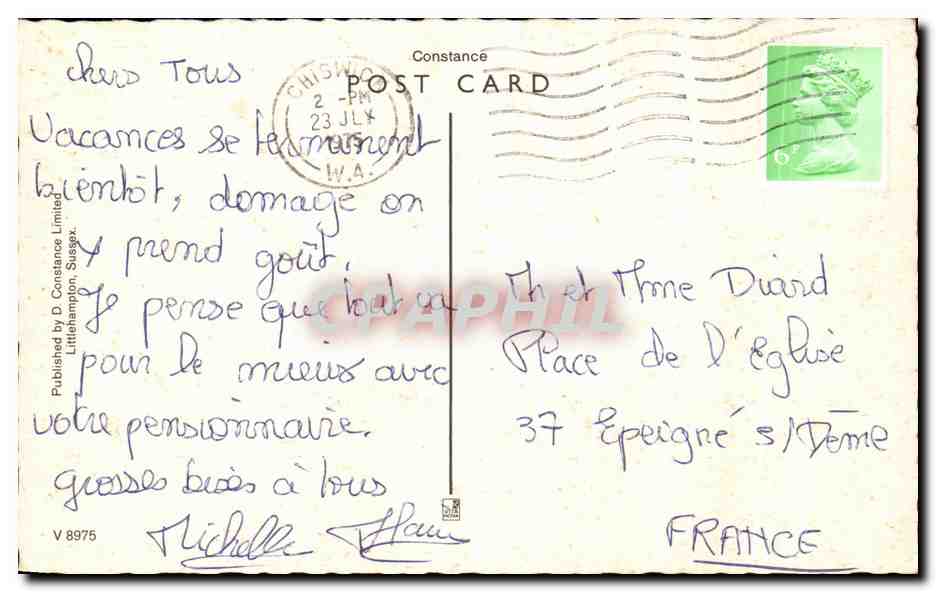 Constance
POST CARD
CHISWICK
2 -PM
23 JLY
1975
W.4.
6P
chers Tous
Vacances se terminent
bientôt, domage on
y prend goût.
Je pense que tout va
pour le mieux avec
votre pensionnaire.
grosses bises à tous
Michelle
Published by D. Constance Limited,
Littlehampton, Sussex.
V 8975
CPAPHIL
Mr et Mme Diard
Place de l'Eglise
37 Epeigné s/Dême
FRANCE